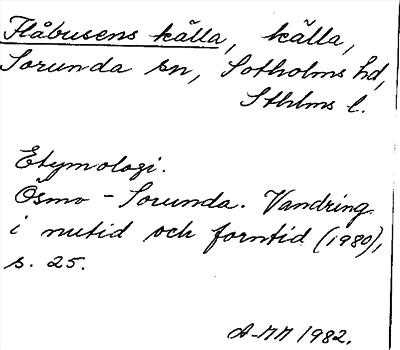 Flåbusens källa, källa,
Sorunda sn, Sotholms hd,
Sthlms l.
Etymologi.
Ösmo - Sorunda. Vandring
i nutid och forntid (1980),
s. 25.
A-MM 1982.